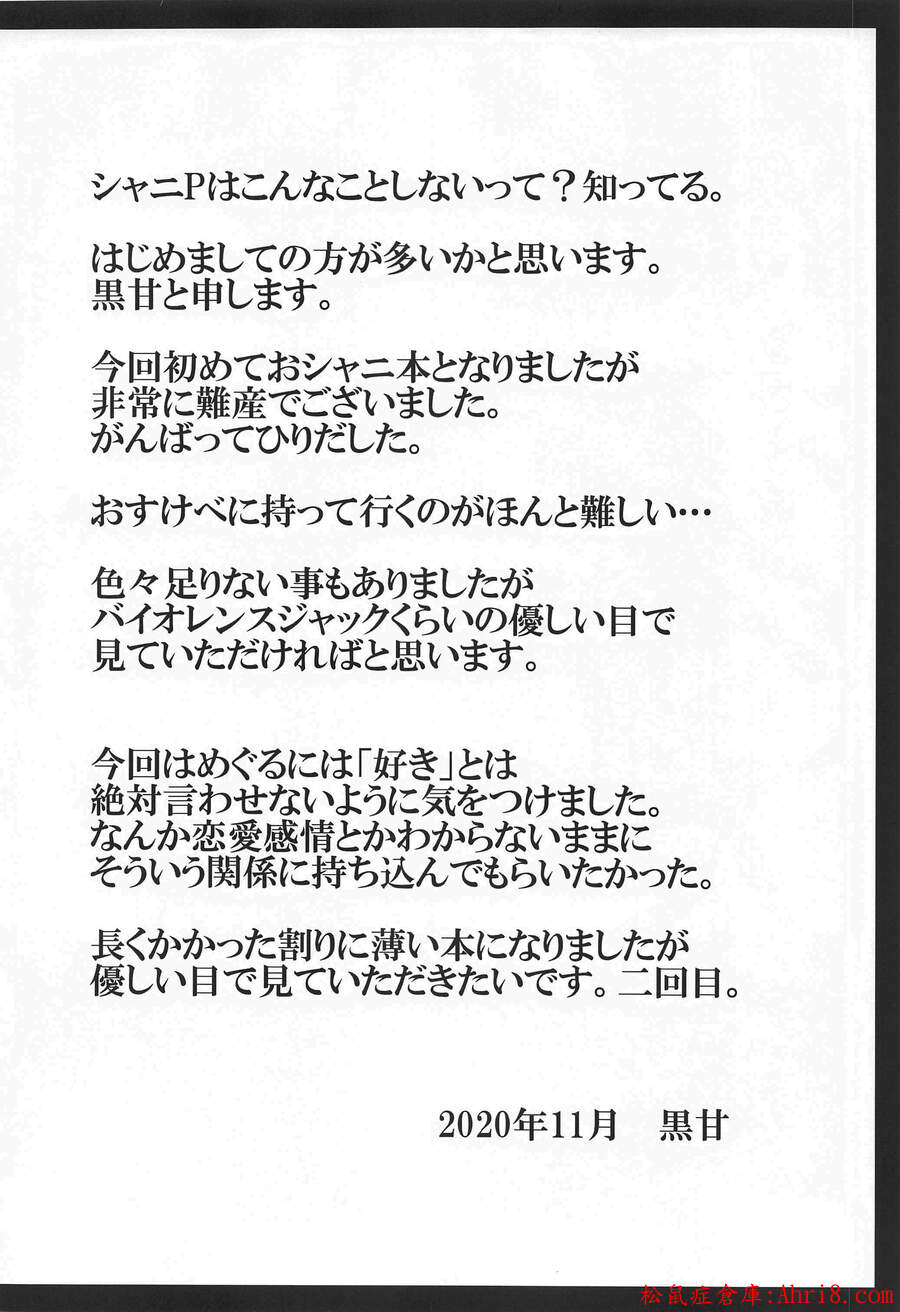 シャニPはこんなことしないって？知ってる。
はじめましての方が多いかと思います。
黒甘と申します。
今回初めておシャニ本となりましたが
非常に難産でございました。
がんばってひりだした。
おすけべに持って行くのがほんと難しい…
色々足りない事もありましたが
バイオレンスジャックくらいの優しい目で
見ていただければと思います。
今回はめぐるには「好き」とは
絶対言わせないように気をつけました。
なんか恋愛感情とかわからないままに
そういう関係に持ち込んでもらいたかった。
長くかかった割りに薄い本になりましたが
優しい目で見ていただきたいです。二回目。
2020年11月　黒甘
松鼠症倉庫:Ahri8.com